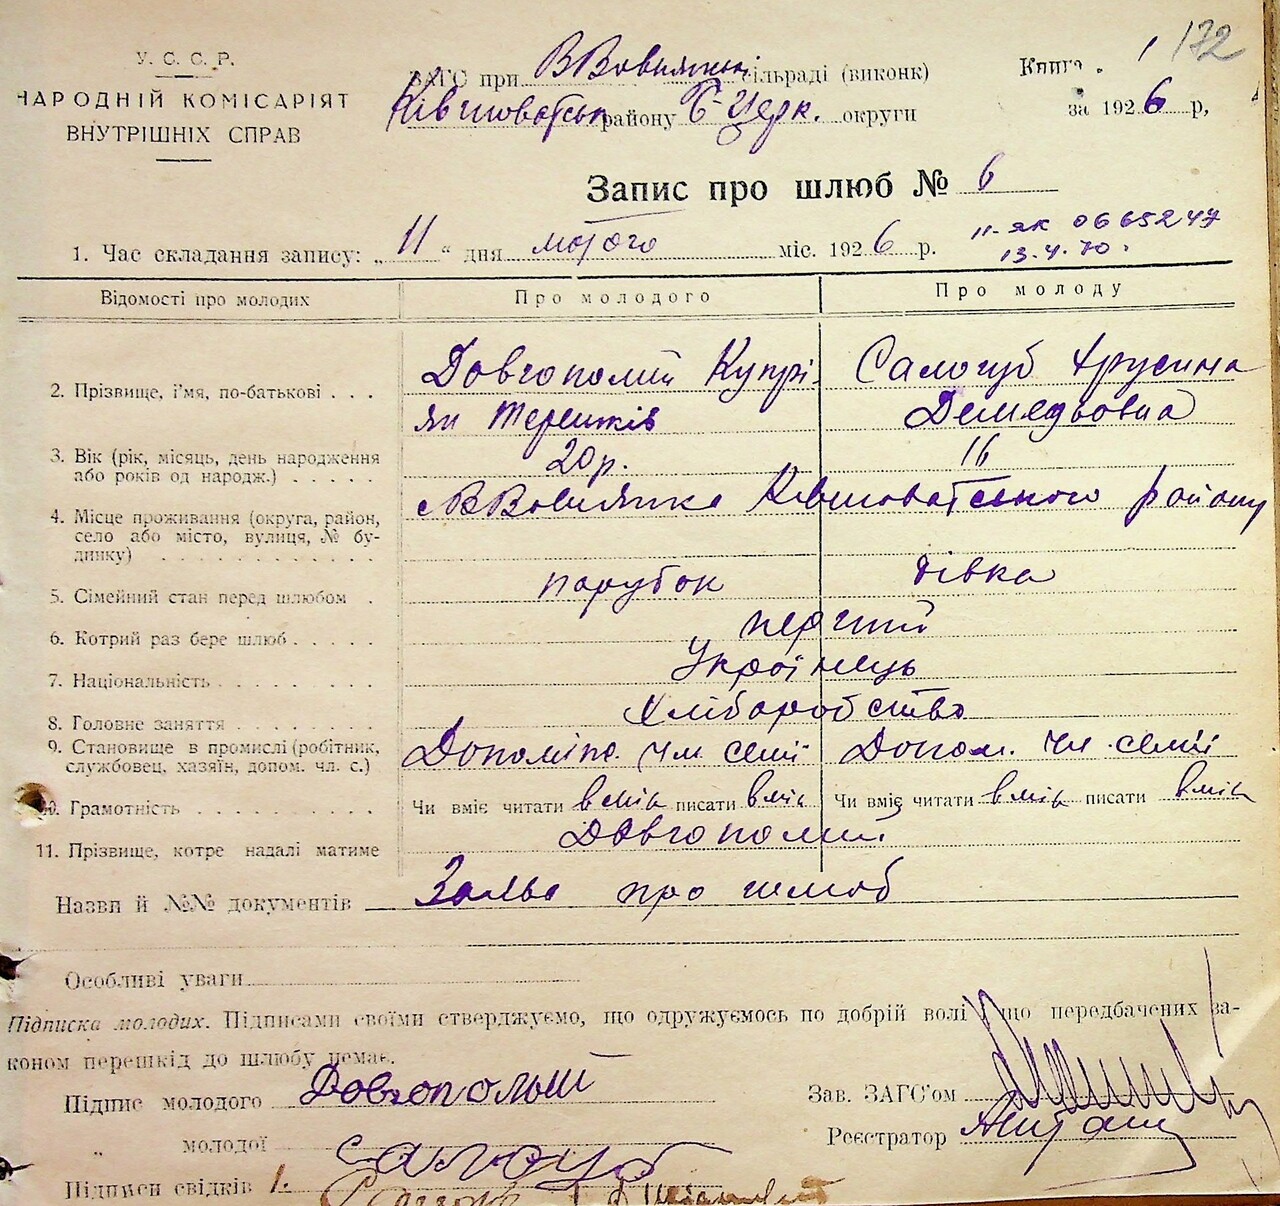 172
У. С. С. Р.
НАРОДНІЙ КОМІСАРІЯТ
ВНУТРІШНІХ СПРАВ
ЗАГС при ВВовнянській сільраді (виконк)
Ківшоватськ району Б-Церк. округи
Книга 1
за 1926 р,
Запис про шлюб № 6
1. Час складання запису: „ 11 “ дня лютого міс. 1926 р.
II-ЯК 0665247
13.4.70.
Відомості про молодих Про молодого Про молоду
2. Прізвище, і'мя, по-батькові . . . Довгополий Купрі- Салогуб Хрусина
ян Терешків Демедьовна
3. Вік (рік, місяць, день народження 20р. 16
або років од народж.) . . . . .
4. Місце проживання (округа, район, с ВВовнянка Ківшоватського району
село або місто, вулиця, № бу-
динку) . . . . . . . . . .
5. Сімейний стан перед шлюбом . парубок дівка
6. Котрий раз бере шлюб . . . . . перший
7. Національність . . . . . . . . Українець
8. Головне заняття . . . . . . . Хліборобство
9. Становище в промислі (робітник, Допоміж. Чл. семії Допом. Чл. семії
службовец, хазяїн, допом. чл. с.)
10. Грамотність . . . . . . . . . Чи вміє читати вмік писати вмік Чи вміє читати вмік писати вмік
11. Прізвище, котре надалі матиме Довгополий
Назви й №№ документів Заява про шлюб
Особливі уваги
Підписка молодих. Підписами своїми стверджуємо, що одружуємось по добрій волі і що передбачених за-
коном перешкід до шлюбу немає.
Підпис молодого Довгополый
Зав. ЗАГС'ом
„ молодої Салогуб
Реєстратор
Підписи свідків 1.